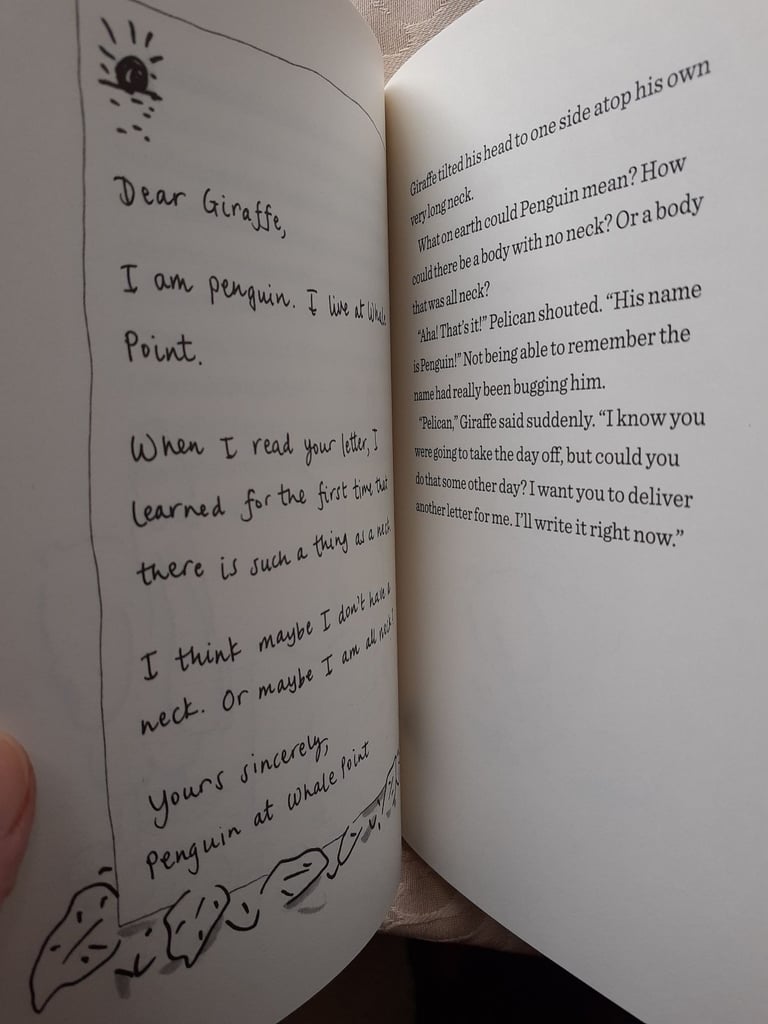 Dear Giraffe,
I am penguin. I live at Whale
Point.
When I read your letter, I
learned for the first time that
there is such a thing as a neck
I think maybe I don't have a
neck. Or maybe I am all neck!
Yours sincerely,
Penguin at Whale Point
Giraffe tilted his head to one side atop his own
very long neck.
What on earth could Penguin mean? How
could there be a body with no neck? Or a body
that was all neck?
“Aha! That's it!” Pelican shouted. “His name
is Penguin!” Not being able to remember the
name had really been bugging him.
“Pelican,” Giraffe said suddenly. “I know you
were going to take the day off, but could you
do that some other day? I want you to deliver
another letter for me. I'll write it right now.”